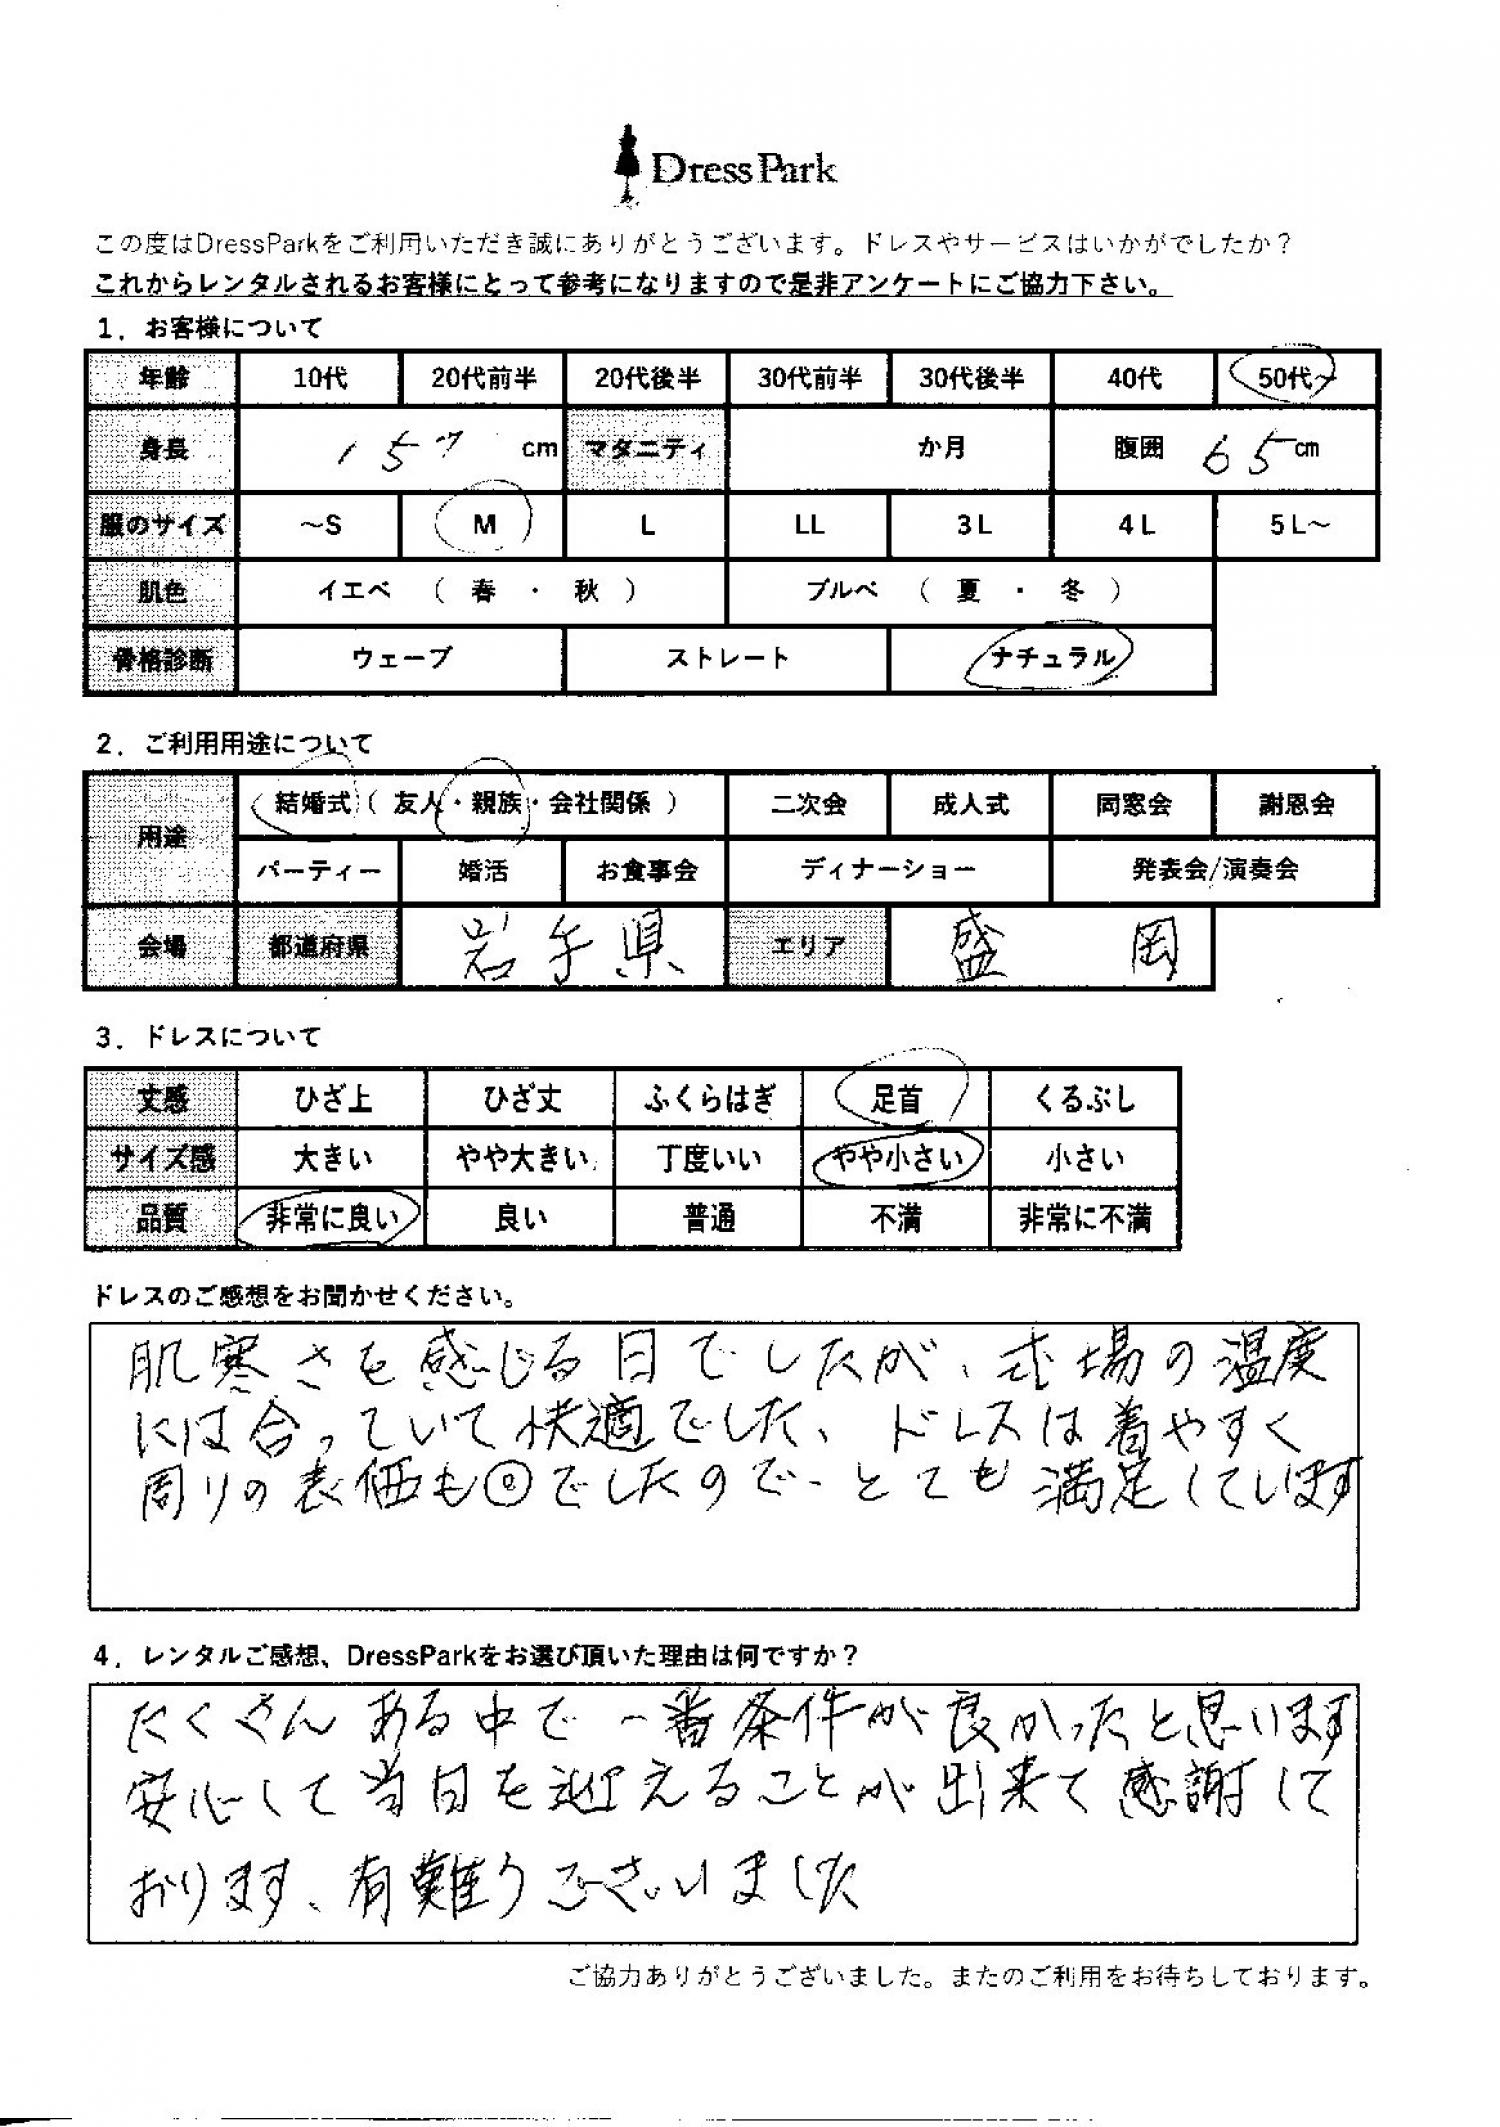 DressPark
この度はDressParkをご利用いただき誠にありがとうございます。ドレスやサービスはいかがでしたか？
これからレンタルされるお客様にとって参考になりますので是非アンケートにご協力下さい。
1．お客様について
年齢 10代 20代前半 20代後半 30代前半 30代後半 40代 50代～
身長 157 cm マタニティ か月 腹囲 65 cm
服のサイズ ～S M L LL 3L 4L 5L～
肌色 イエベ （ 春 ・ 秋 ） ブルベ （ 夏 ・ 冬 ）
骨格診断 ウェーブ ストレート ナチュラル
2．ご利用用途について
用途 結婚式（ 友人・親族・会社関係 ） 二次会 成人式 同窓会 謝恩会
パーティー 婚活 お食事会 ディナーショー 発表会/演奏会
会場 都道府県 岩手県 エリア 盛岡
3．ドレスについて
丈感 ひざ上 ひざ丈 ふくらはぎ 足首 くるぶし
サイズ感 大きい やや大きい 丁度いい やや小さい 小さい
品質 非常に良い 良い 普通 不満 非常に不満
ドレスのご感想をお聞かせください。
肌寒さも感じる日でしたが、式場の温度
には合っていて快適でした、ドレスは着やすく
周りの表価も◎でしたので、とても満足しています
4．レンタルご感想、DressParkをお選び頂いた理由は何ですか？
たくさんある中で一番条件が良かったと思います
安心して当日を迎えることが出来て感謝して
おります、有難うございました
ご協力ありがとうございました。またのご利用をお待ちしております。